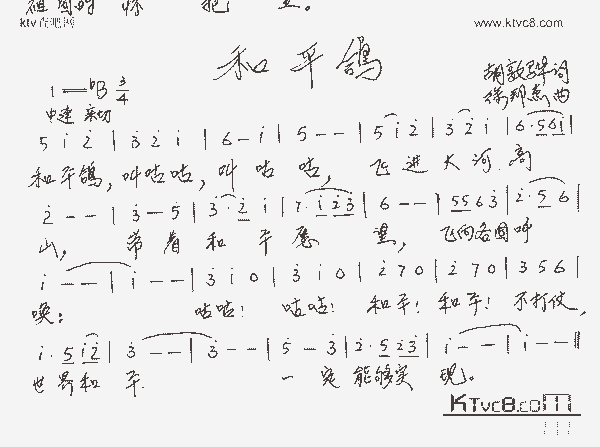 祖国的怀抱里。
ktv点吧网
www.ktvc8.com
和平鸽
1=♭B 3/4
中速 亲切
词
曲
5 i̇ 2̇ | 3̇ 2̇ i̇ | 6 - i̇ | 5 - - | 5 i̇ 2̇ | 3̇ 2̇ i̇ | 6· 5 6 i̇ |
和平鸽,叫咕咕,叫咕咕,飞进大河高
2̇ - - | 3̇ - 5 | 3̇· 2̇ i̇ | 7· i̇ 2̇ 3̇ | 6 - - | 5 5 6 3 | 2̇· 5 6 |
山,带着和平愿望,飞向各国呼
i̇ - - | i̇ - - | 3̇ i̇ 0 | 3̇ i̇ 0 | 2̇ 7 0 | 2̇ 7 0 | 3 5 6 |
唤:咕咕!咕咕!和平!和平!不打仗,
i̇· 5 i̇ 2̇ | 3̇ - - | 3̇ - - | 5 - 3̇ | 2̇· 5 2̇ 3̇ | i̇ - - | i̇ - - ‖
世界和平.一定能够实现。
KTvc8.com